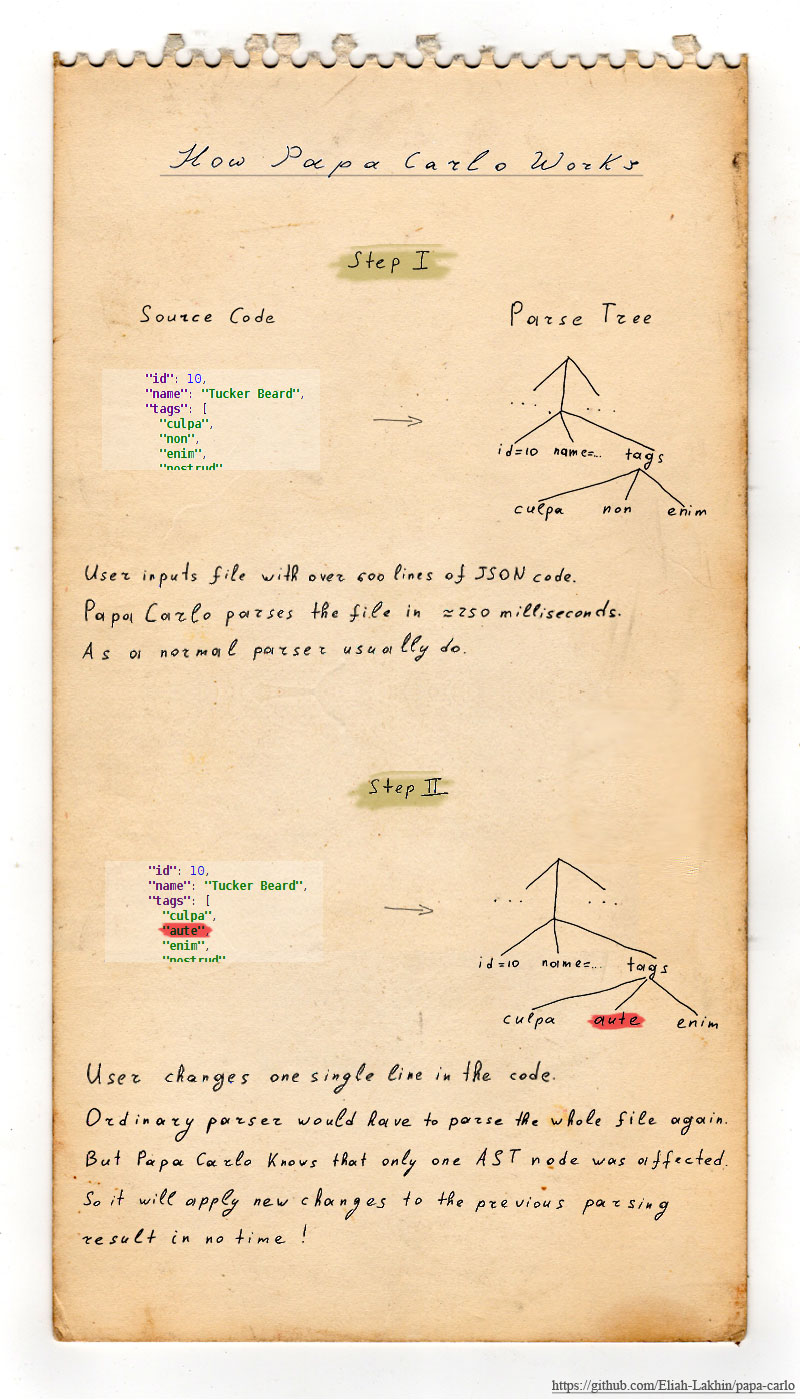 How Papa Carlo Works
Step I
Source Code
Parse Tree
"id": 10,
"name": "Tucker Beard",
"tags": [
"culpa",
"non",
"enim",
"nostrud"
. . . . . . .
id=10 name=... tags
culpa non enim
User inputs file with over 600 lines of JSON code.
Papa Carlo parses the file in ≈250 milliseconds.
As a normal parser usually do.
Step II
"id": 10,
"name": "Tucker Beard",
"tags": [
"culpa",
"aute",
"enim",
"nostrud"
... ...
id=10 name=... tags
culpa aute enim
User changes one single line in the code.
Ordinary parser would have to parse the whole file again.
But Papa Carlo knows that only one AST node was affected.
So it will apply new changes to the previous parsing
result in no time !
https://github.com/Eliah-Lakhin/papa-carlo